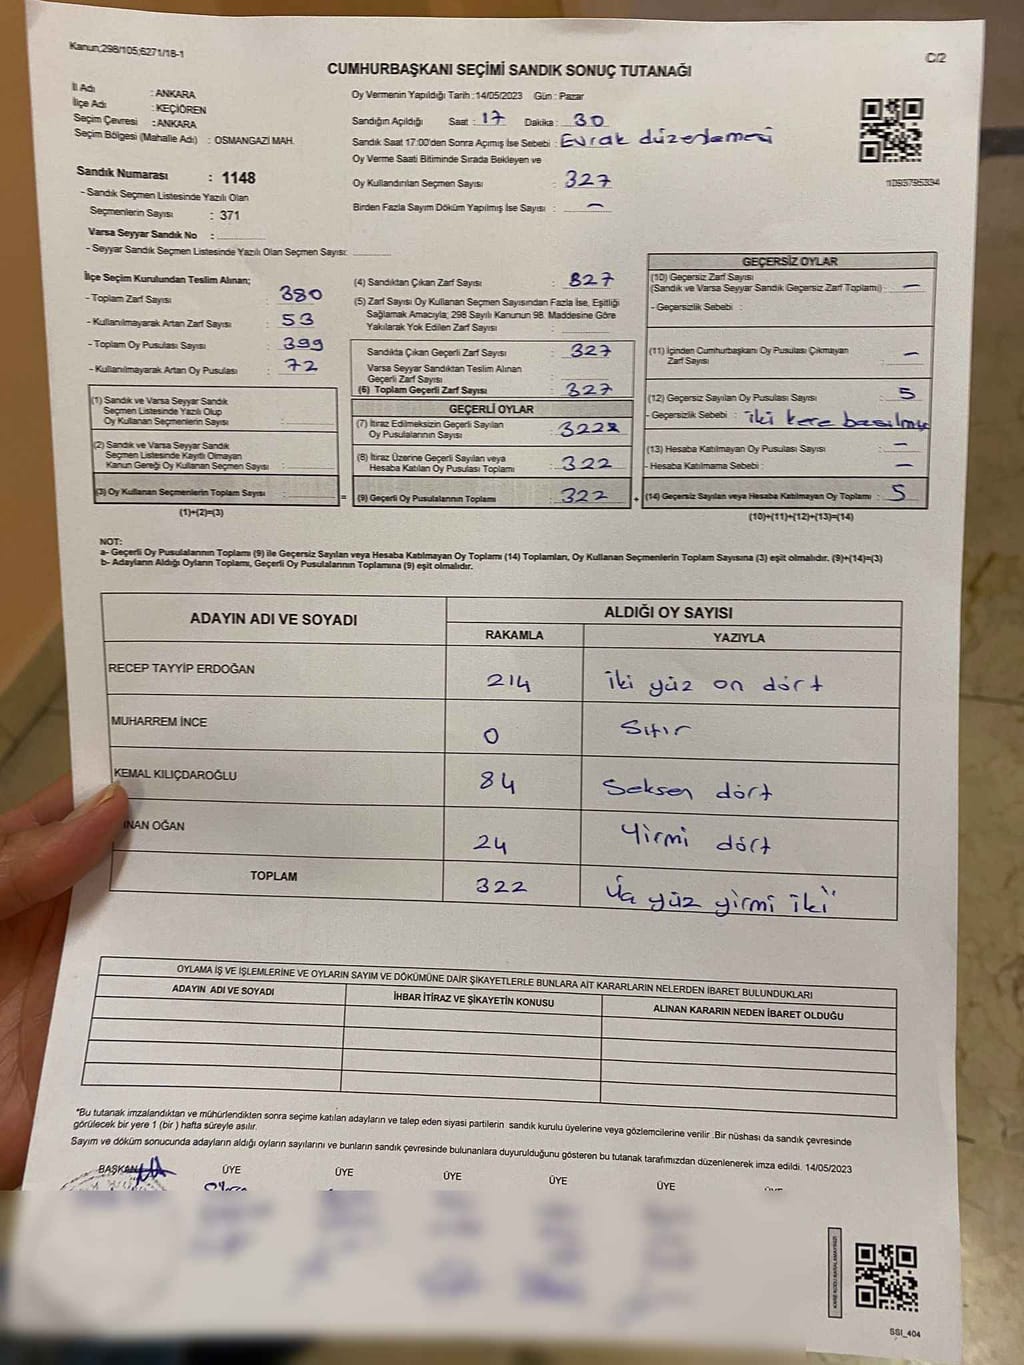 Kanun;298/105;6271/18-1
C/2
CUMHURBAŞKANI SEÇİMİ SANDIK SONUÇ TUTANAĞI
İl Adı : ANKARA
İlçe Adı : KEÇİÖREN
Seçim Çevresi : ANKARA
Seçim Bölgesi (Mahalle Adı) : OSMANGAZİ MAH.
Oy Vermenin Yapıldığı Tarih :14/05/2023 Gün : Pazar
Sandığın Açıldığı Saat : 17 Dakika : 30
Sandık Saat 17:00'den Sonra Açımış İse Sebebi : Evrak düzenlemesi
Oy Verme Saati Bitiminde Sırada Bekleyen ve
Oy Kullandırılan Seçmen Sayısı : 327
Birden Fazla Sayım Döküm Yapılmış İse Sayısı : –
Sandık Numarası : 1148
- Sandık Seçmen Listesinde Yazılı Olan
Seçmenlerin Sayısı : 371
Varsa Seyyar Sandık No :
- Seyyar Sandık Seçmen Listesinde Yazılı Olan Seçmen Sayısı:
İlçe Seçim Kurulundan Teslim Alınan;
- Toplam Zarf Sayısı : 380
- Kullanılmayarak Artan Zarf Sayısı : 53
- Toplam Oy Pusulası Sayısı : 399
- Kullanılmayarak Artan Oy Pusulası : 72
(1) Sandık ve Varsa Seyyar Sandık
Seçmen Listesinde Yazılı Olup
Oy Kullanan Seçmenlerin Sayısı :
(2) Sandık ve Varsa Seyyar Sandık
Seçmen Listesinde Kayıtlı Olmayan
Kanun Gereği Oy Kullanan Seçmen Sayısı :
(3) Oy Kullanan Seçmenlerin Toplam Sayısı :
(1)+(2)=(3)
(4) Sandıktan Çıkan Zarf Sayısı : 327
(5) Zarf Sayısı Oy Kullanan Seçmen Sayısından Fazla İse, Eşitliği
Sağlamak Amacıyla; 298 Sayılı Kanunun 98. Maddesine Göre
Yakılarak Yok Edilen Zarf Sayısı :
Sandıkta Çıkan Geçerli Zarf Sayısı : 327
Varsa Seyyar Sandıktan Teslim Alınan
Geçerli Zarf Sayısı :
(6) Toplam Geçerli Zarf Sayısı : 327
GEÇERLİ OYLAR
(7) İtiraz Edilmeksizin Geçerli Sayılan
Oy Pusulalarının Sayısı : 322
(8) İtiraz Üzerine Geçerli Sayılan veya
Hesaba Katılan Oy Pusulası Toplamı : 322
= (9) Geçerli Oy Pusulalarının Toplamı : 322
GEÇERSİZ OYLAR
(10) Geçersiz Zarf Sayısı
(Sandık ve Varsa Seyyar Sandık Geçersiz Zarf Toplamı) : –
- Geçersizlik Sebebi :
(11) İçinden Cumhurbaşkanı Oy Pusulası Çıkmayan
Zarf Sayısı : –
(12) Geçersiz Sayılan Oy Pusulası Sayısı : 5
- Geçersizlik Sebebi : iki kere basılmış
(13) Hesaba Katılmayan Oy Pusulası Sayısı : –
- Hesaba Katılmama Sebebi : –
+ (14) Geçersiz Sayılan veya Hesaba Katılmayan Oy Toplamı : 5
(10)+(11)+(12)+(13)=(14)
NOT:
a- Geçerli Oy Pusulalarının Toplamı (9) ile Geçersiz Sayılan veya Hesaba Katılmayan Oy Toplamı (14) Toplamları, Oy Kullanan Seçmenlerin Toplam Sayısına (3) eşit olmalıdır. (9)+(14)=(3)
b- Adayların Aldığı Oyların Toplamı, Geçerli Oy Pusulalarının Toplamına (9) eşit olmalıdır.
ADAYIN ADI VE SOYADI
ALDIĞI OY SAYISI
RAKAMLA YAZIYLA
RECEP TAYYİP ERDOĞAN 214 İki yüz on dört
MUHARREM İNCE 0 Sıfır
KEMAL KILIÇDAROĞLU 84 Seksen dört
İNAN OĞAN 24 Yirmi dört
TOPLAM 322 Üç yüz yirmi iki
OYLAMA İŞ VE İŞLEMLERİNE VE OYLARIN SAYIM VE DÖKÜMÜNE DAİR ŞİKAYETLERLE BUNLARA AİT KARARLARIN NELERDEN İBARET BULUNDUKLARI
ADAYIN ADI VE SOYADI
İHBAR İTİRAZ VE ŞİKAYETİN KONUSU
ALINAN KARARIN NEDEN İBARET OLDUĞU
*Bu tutanak imzalandıktan ve mühürlendikten sonra seçime katılan adayların ve talep eden siyasi partilerin sandık kurulu üyelerine veya gözlemcilerine verilir .Bir nüshası da sandık çevresinde
görülecek bir yere 1 (bir ) hafta süreyle asılır.
Sayım ve döküm sonucunda adayların aldığı oyların sayılarını ve bunların sandık çevresinde bulunanlara duyurulduğunu gösteren bu tutanak tarafımızdan düzenlenerek imza edildi. 14/05/2023
BAŞKAN ÜYE ÜYE ÜYE ÜYE ÜYE
SSI_404